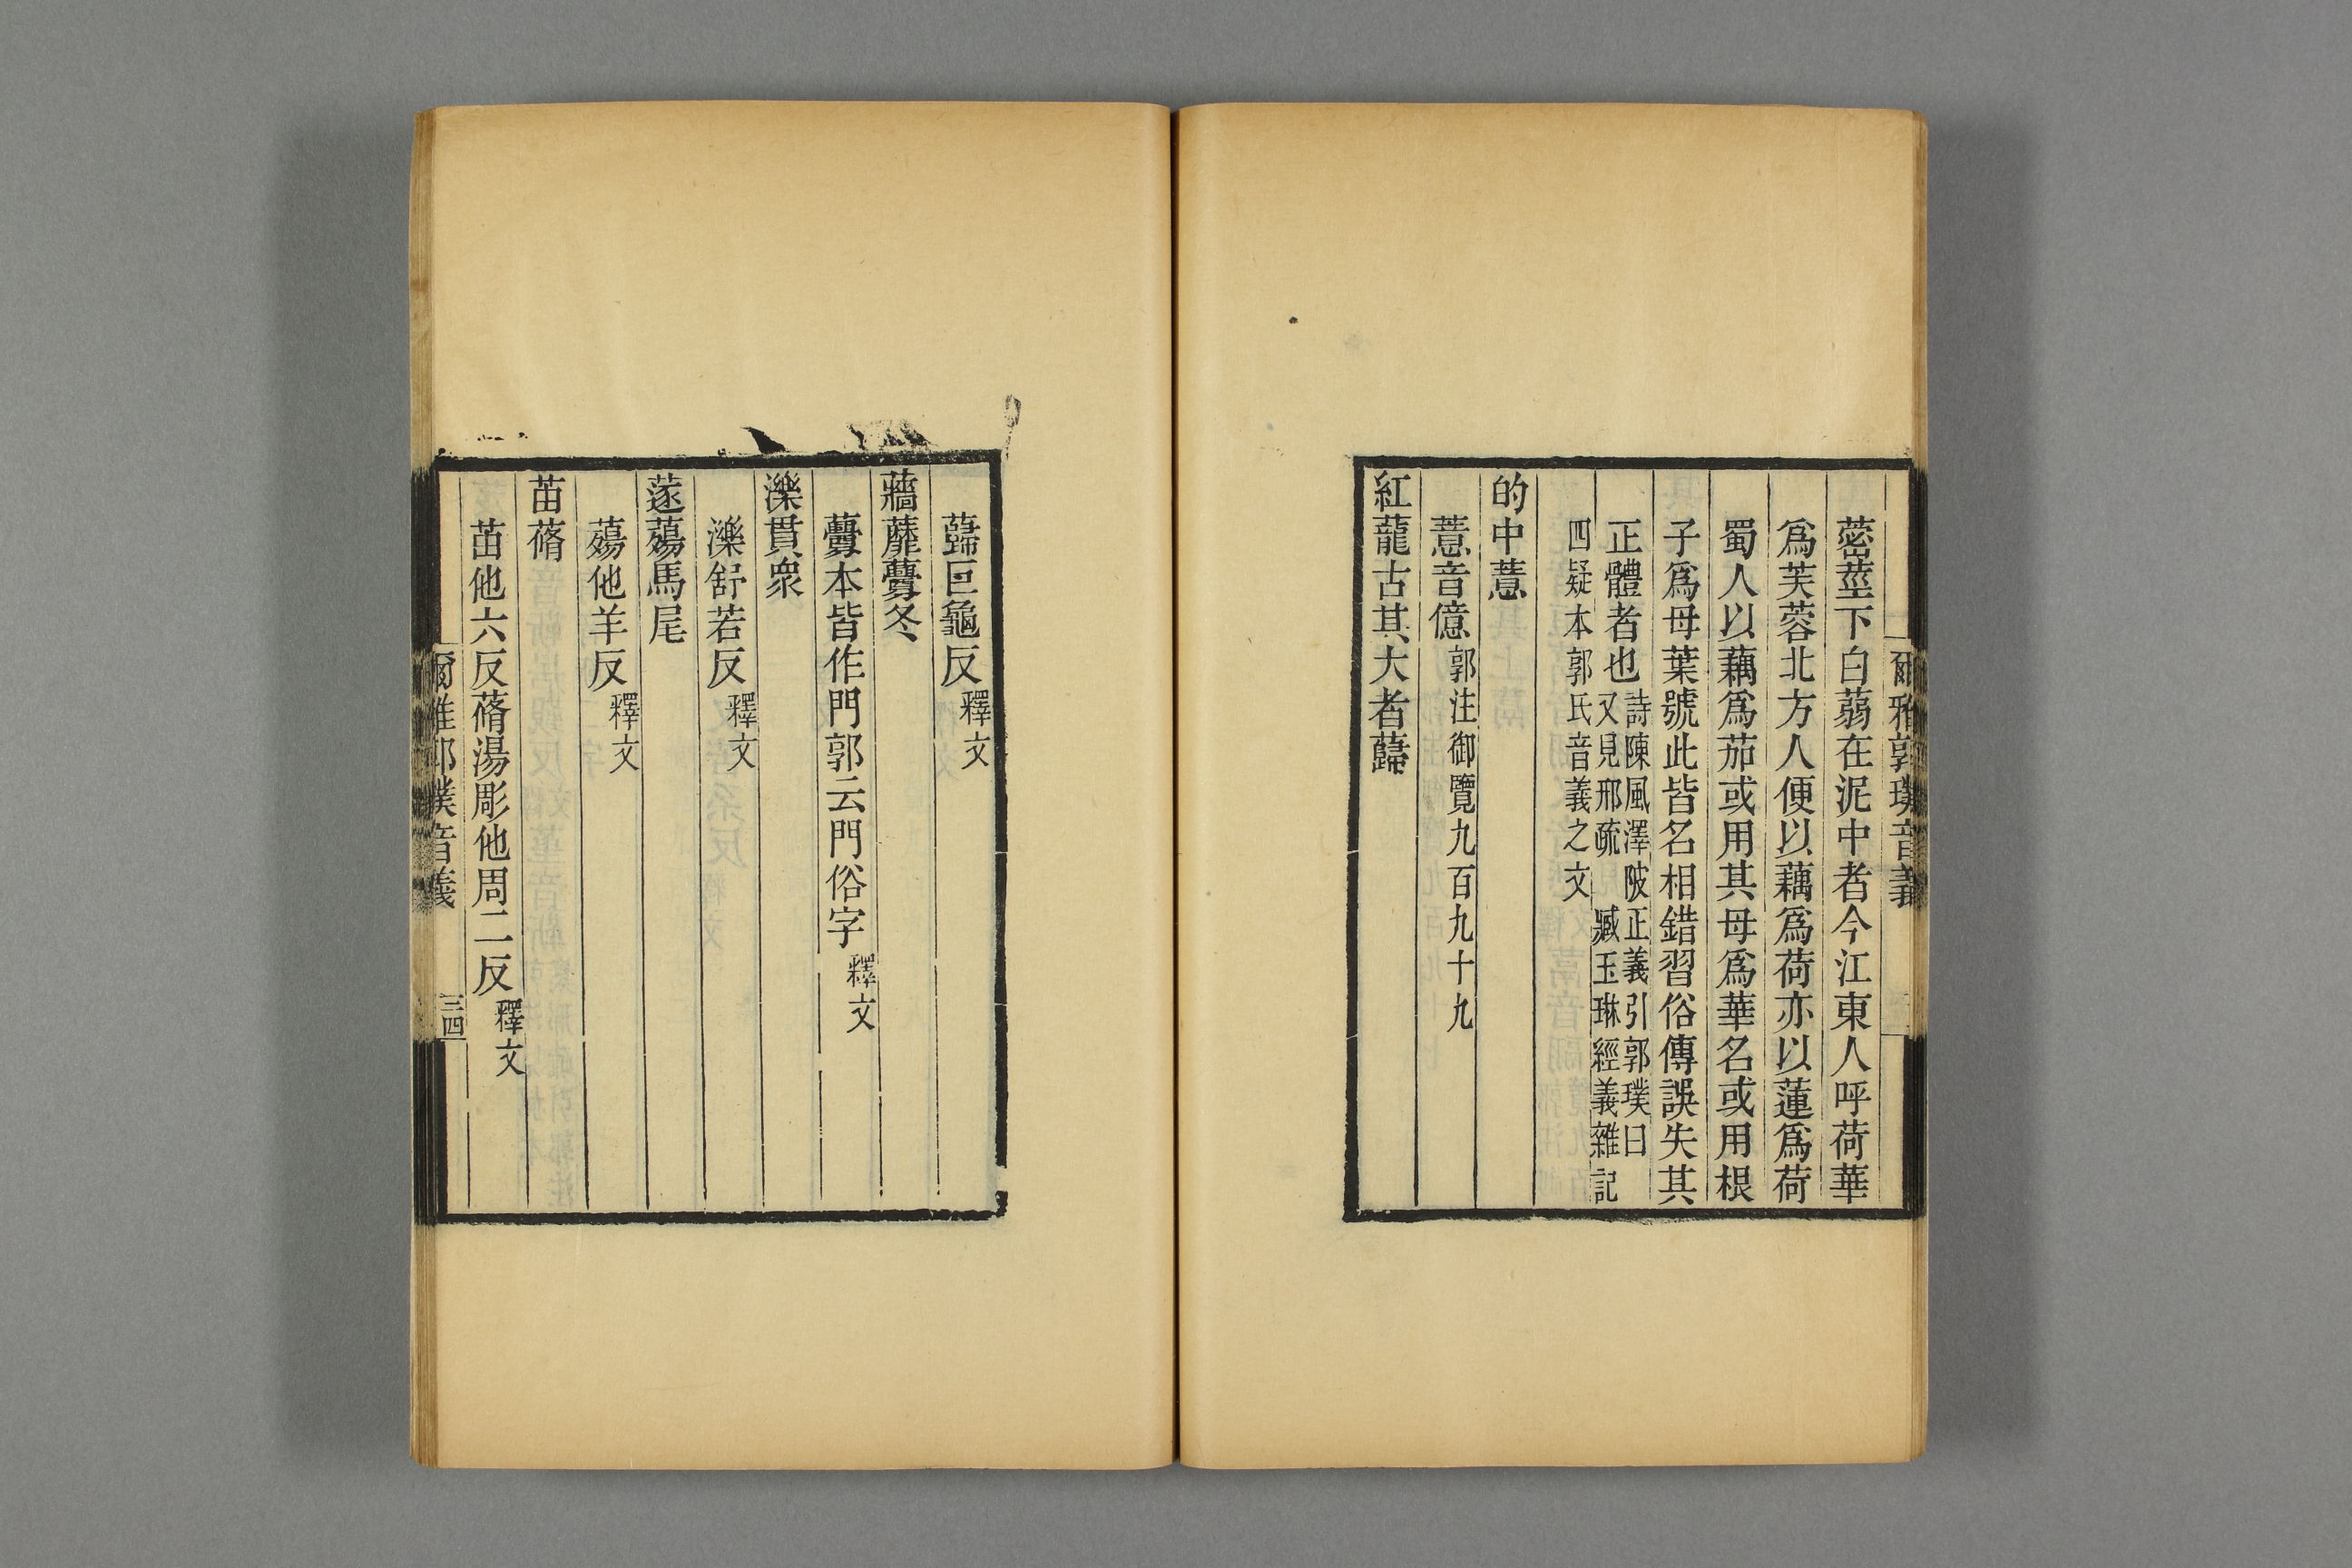 爾雅郭璞音義
蔤莖下白蒻在泥中者今江東人呼荷華
爲芙蓉北方人便以藕爲荷亦以蓮爲荷
蜀人以藕爲茄或用其母爲華名或用根
子爲母葉號此皆名相錯習俗傳誤失其
正體者也詩陳風澤陂正義引郭璞曰
又見邢疏 臧玉琳經義雜記
四疑本郭氏音義之文
的中薏
薏音億郭注御覽九百九十九
紅蘢古其大者蘬
蘬巨龜反釋文
蘠蘼虋冬
虋本皆作門郭云門俗字釋文
濼貫衆
濼舒若反釋文
蓫薚馬尾
薚他羊反釋文
苖蓨
苖他六反蓨湯彫他周二反釋文
爾雅郭璞音義
三四